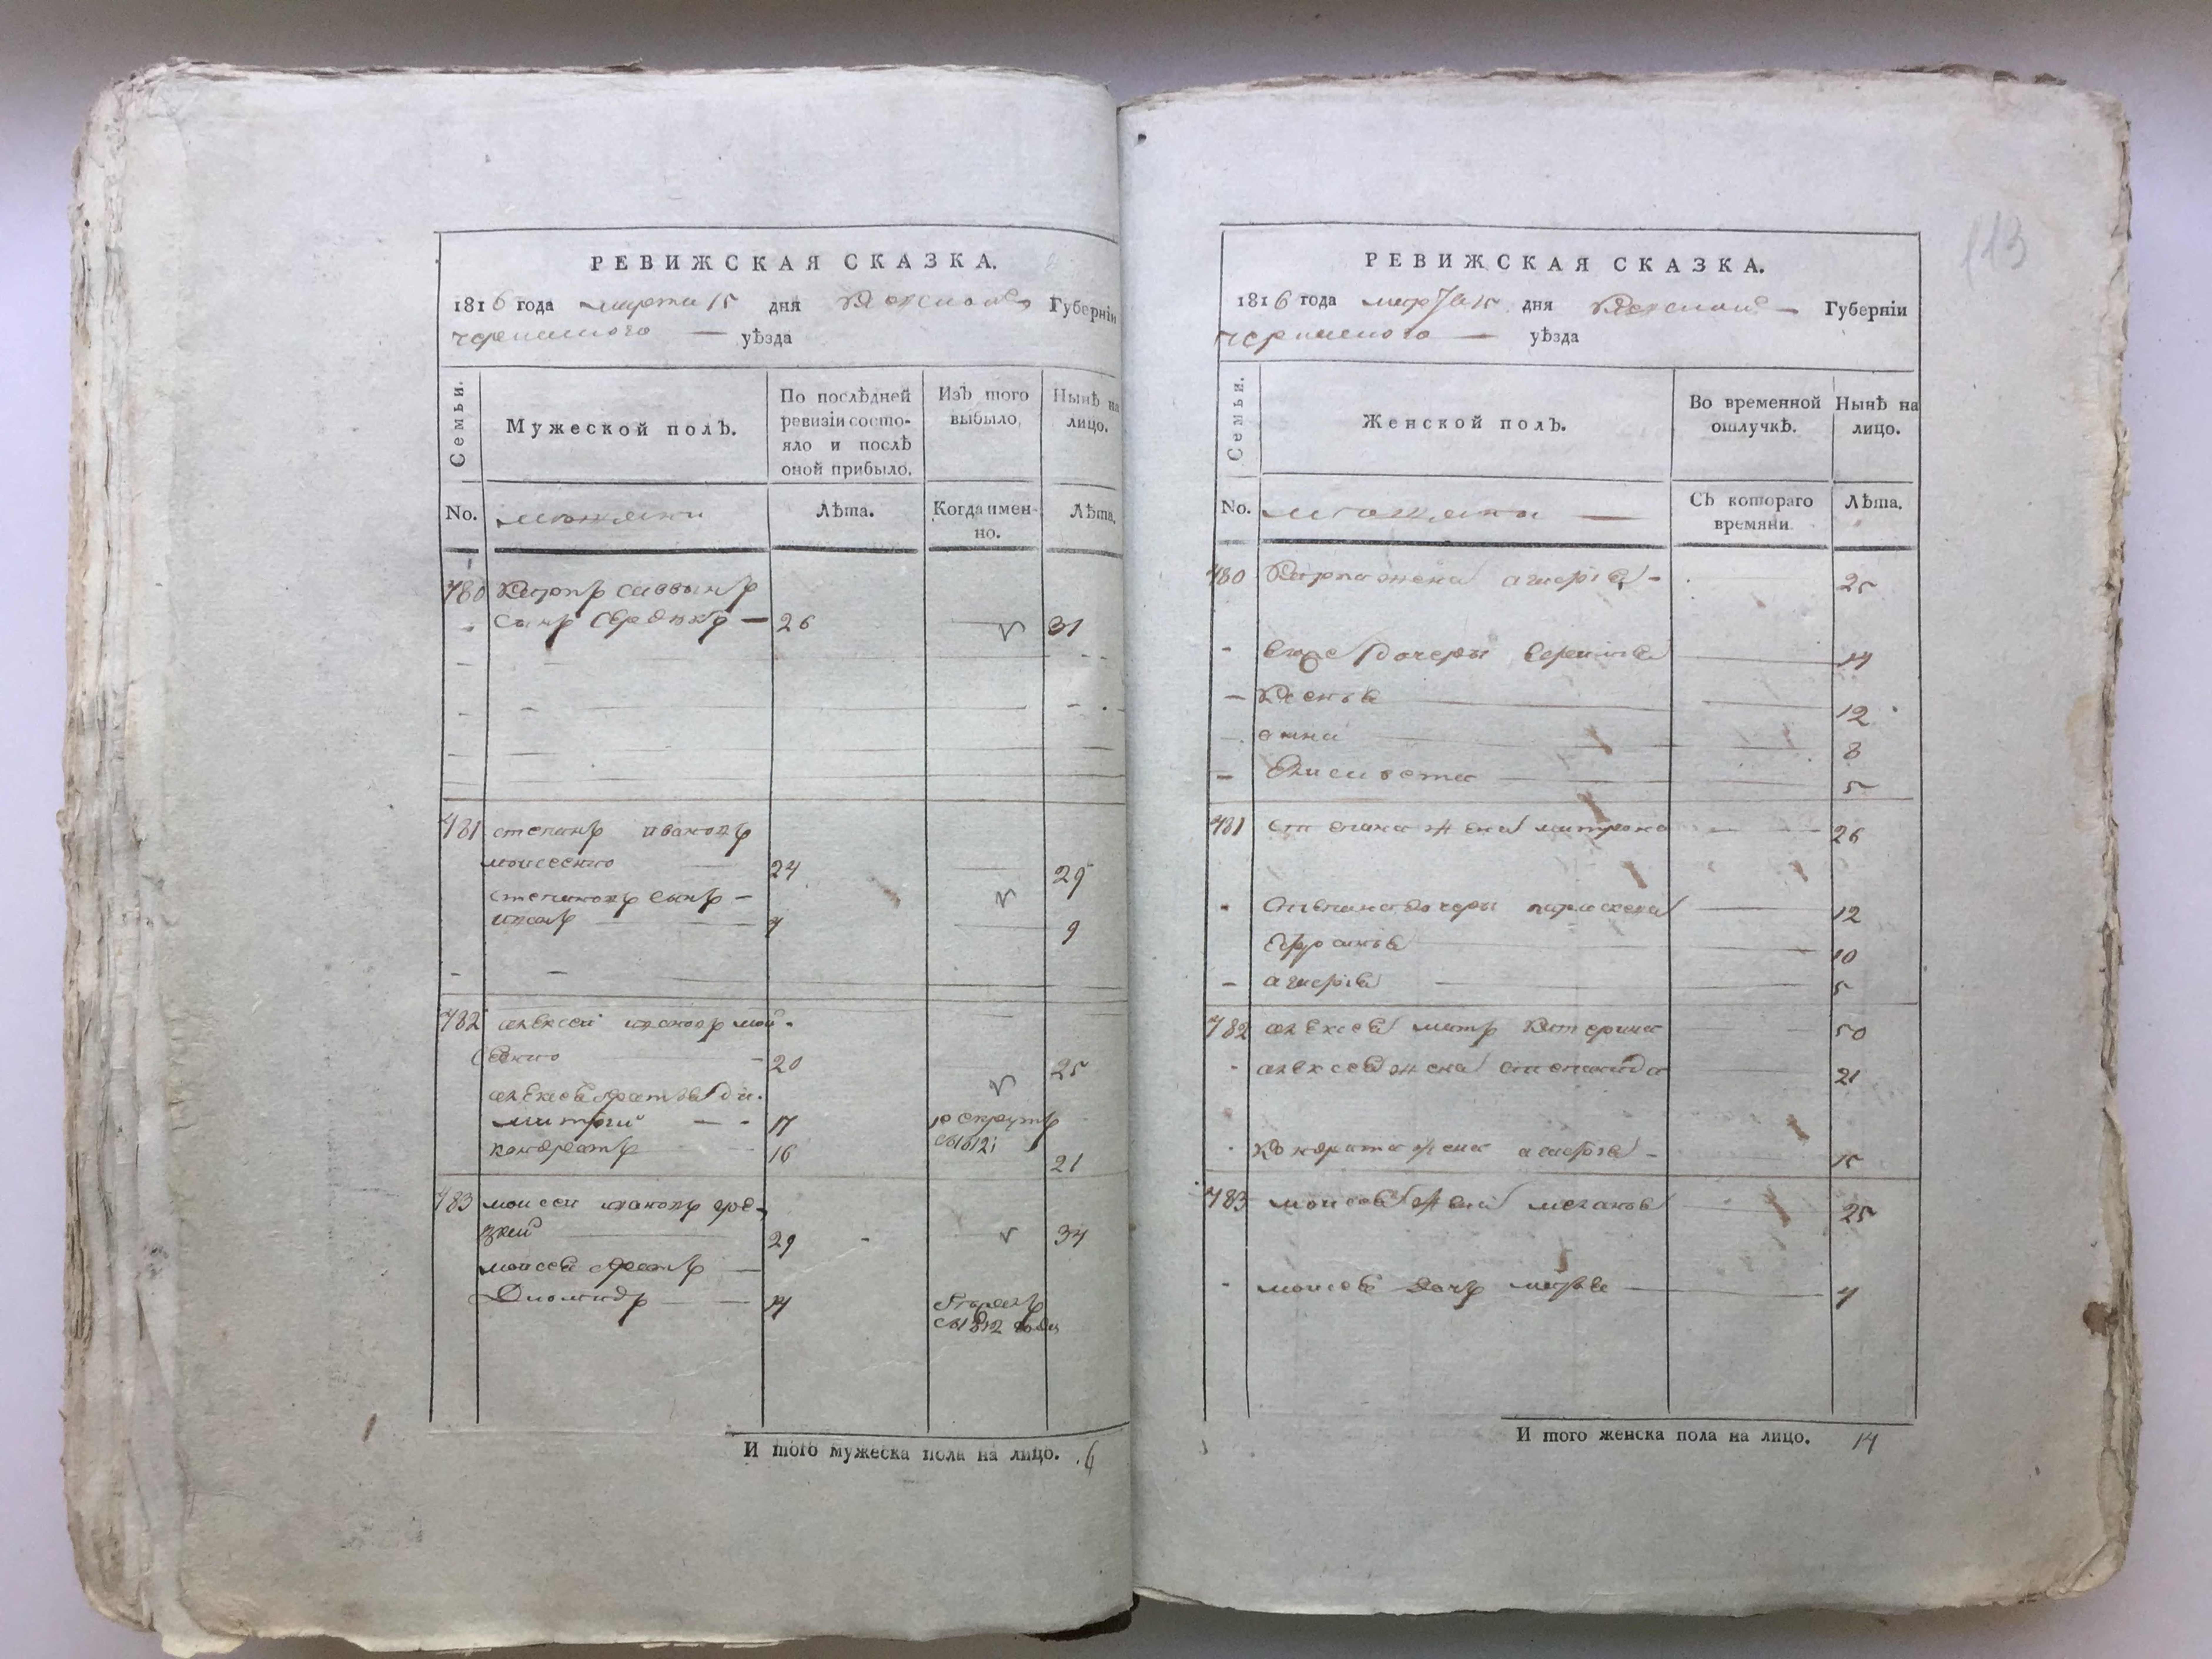 РЕВИЖСКАЯ СКАЗКА.
1816 года марта 15 дня Киевской Губерніи
уѣзда
Семьи.
Мужеской полъ.
По послѣдней ревизіи состо-яло и послѣ оной прибыло.
Изъ того выбыло.
Нынѣ на лицо.
No.
мѣщяни
Лѣта.
Когда имен-но.
Лѣта.
480 Карпъ саввинъ
сынъ 26 31
481 степанъ ивановъ
моисеенко 24 29
степановъ сынъ
иванъ 4 9
482 алексей ивановъ мои-
сеенко 20 25
алексея братья ди-
митрий 17 рекрутъ
кондратъ 16 21
483 моисей ивановъ
29 34
моисея братъ
Диомидъ 14
1812 года
И того мужеска пола на лицо. 6
113
РЕВИЖСКАЯ СКАЗКА.
1816 года марта 15 дня Киевской Губерніи
уѣзда
Семьи.
Женской полъ.
Во временной отлучкѣ.
Нынѣ на лицо.
No.
мѣщяни
Съ котораго времяни
Лѣта.
480 Карпа жена агафія 25
его дочеры 14
Ксенья 12
анна 8
Елисавета 5
481 степана жена матрона 26
Степана дочеры параскева 12
10
агафія 5
482 алексея мать Катерина 50
алексея жена степанида 21
Кондрата жена агафія 15
483 моисея жена меланья 25
моисея дочь марья 4
И того женска пола на лицо. 14